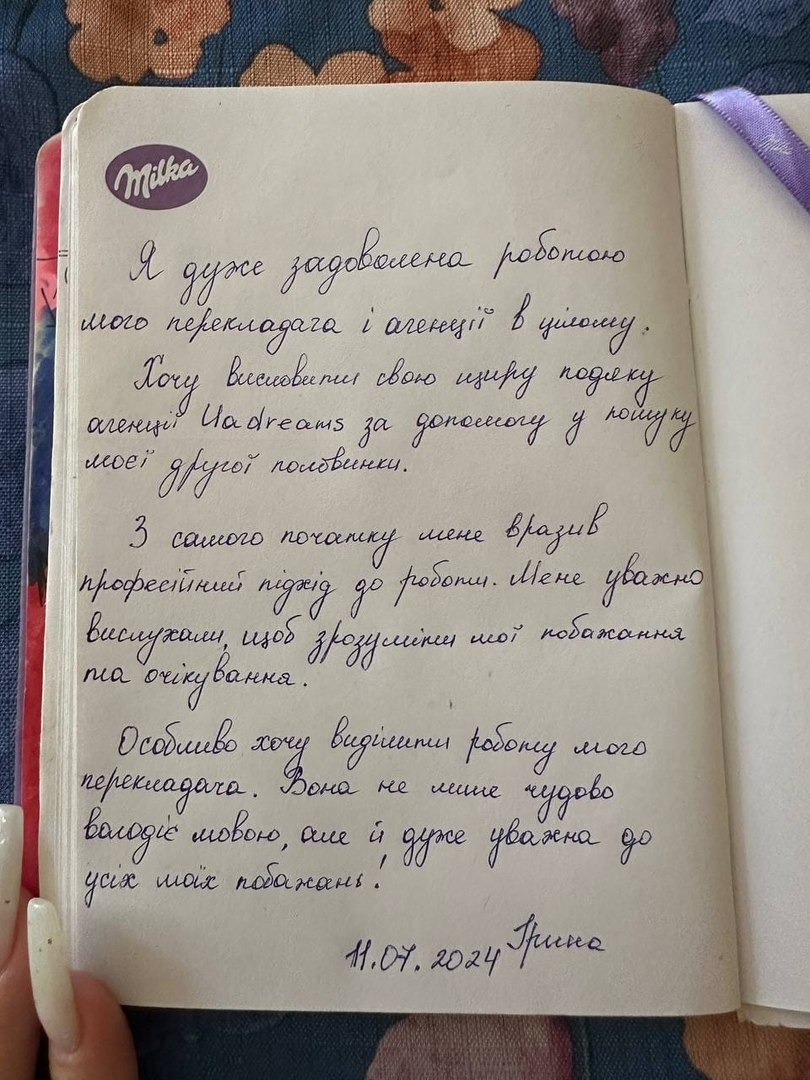 Milka
Milka
Я дуже задоволена роботою
мого перекладача і агенції в цілому.
Хочу висловити свою щиру подяку
агенції Uadreams за допомогу у пошуку
моєї другої половинки.
З самого початку мене вразив
професійний підхід до роботи. Мене уважно
вислухали, щоб зрозуміти мої побажання
та очікування.
Особливо хочу виділити роботу мого
перекладача. Вона не лише чудово
володіє мовою, але й дуже уважна до
усіх моїх побажань!
11.07.2024 Ірина